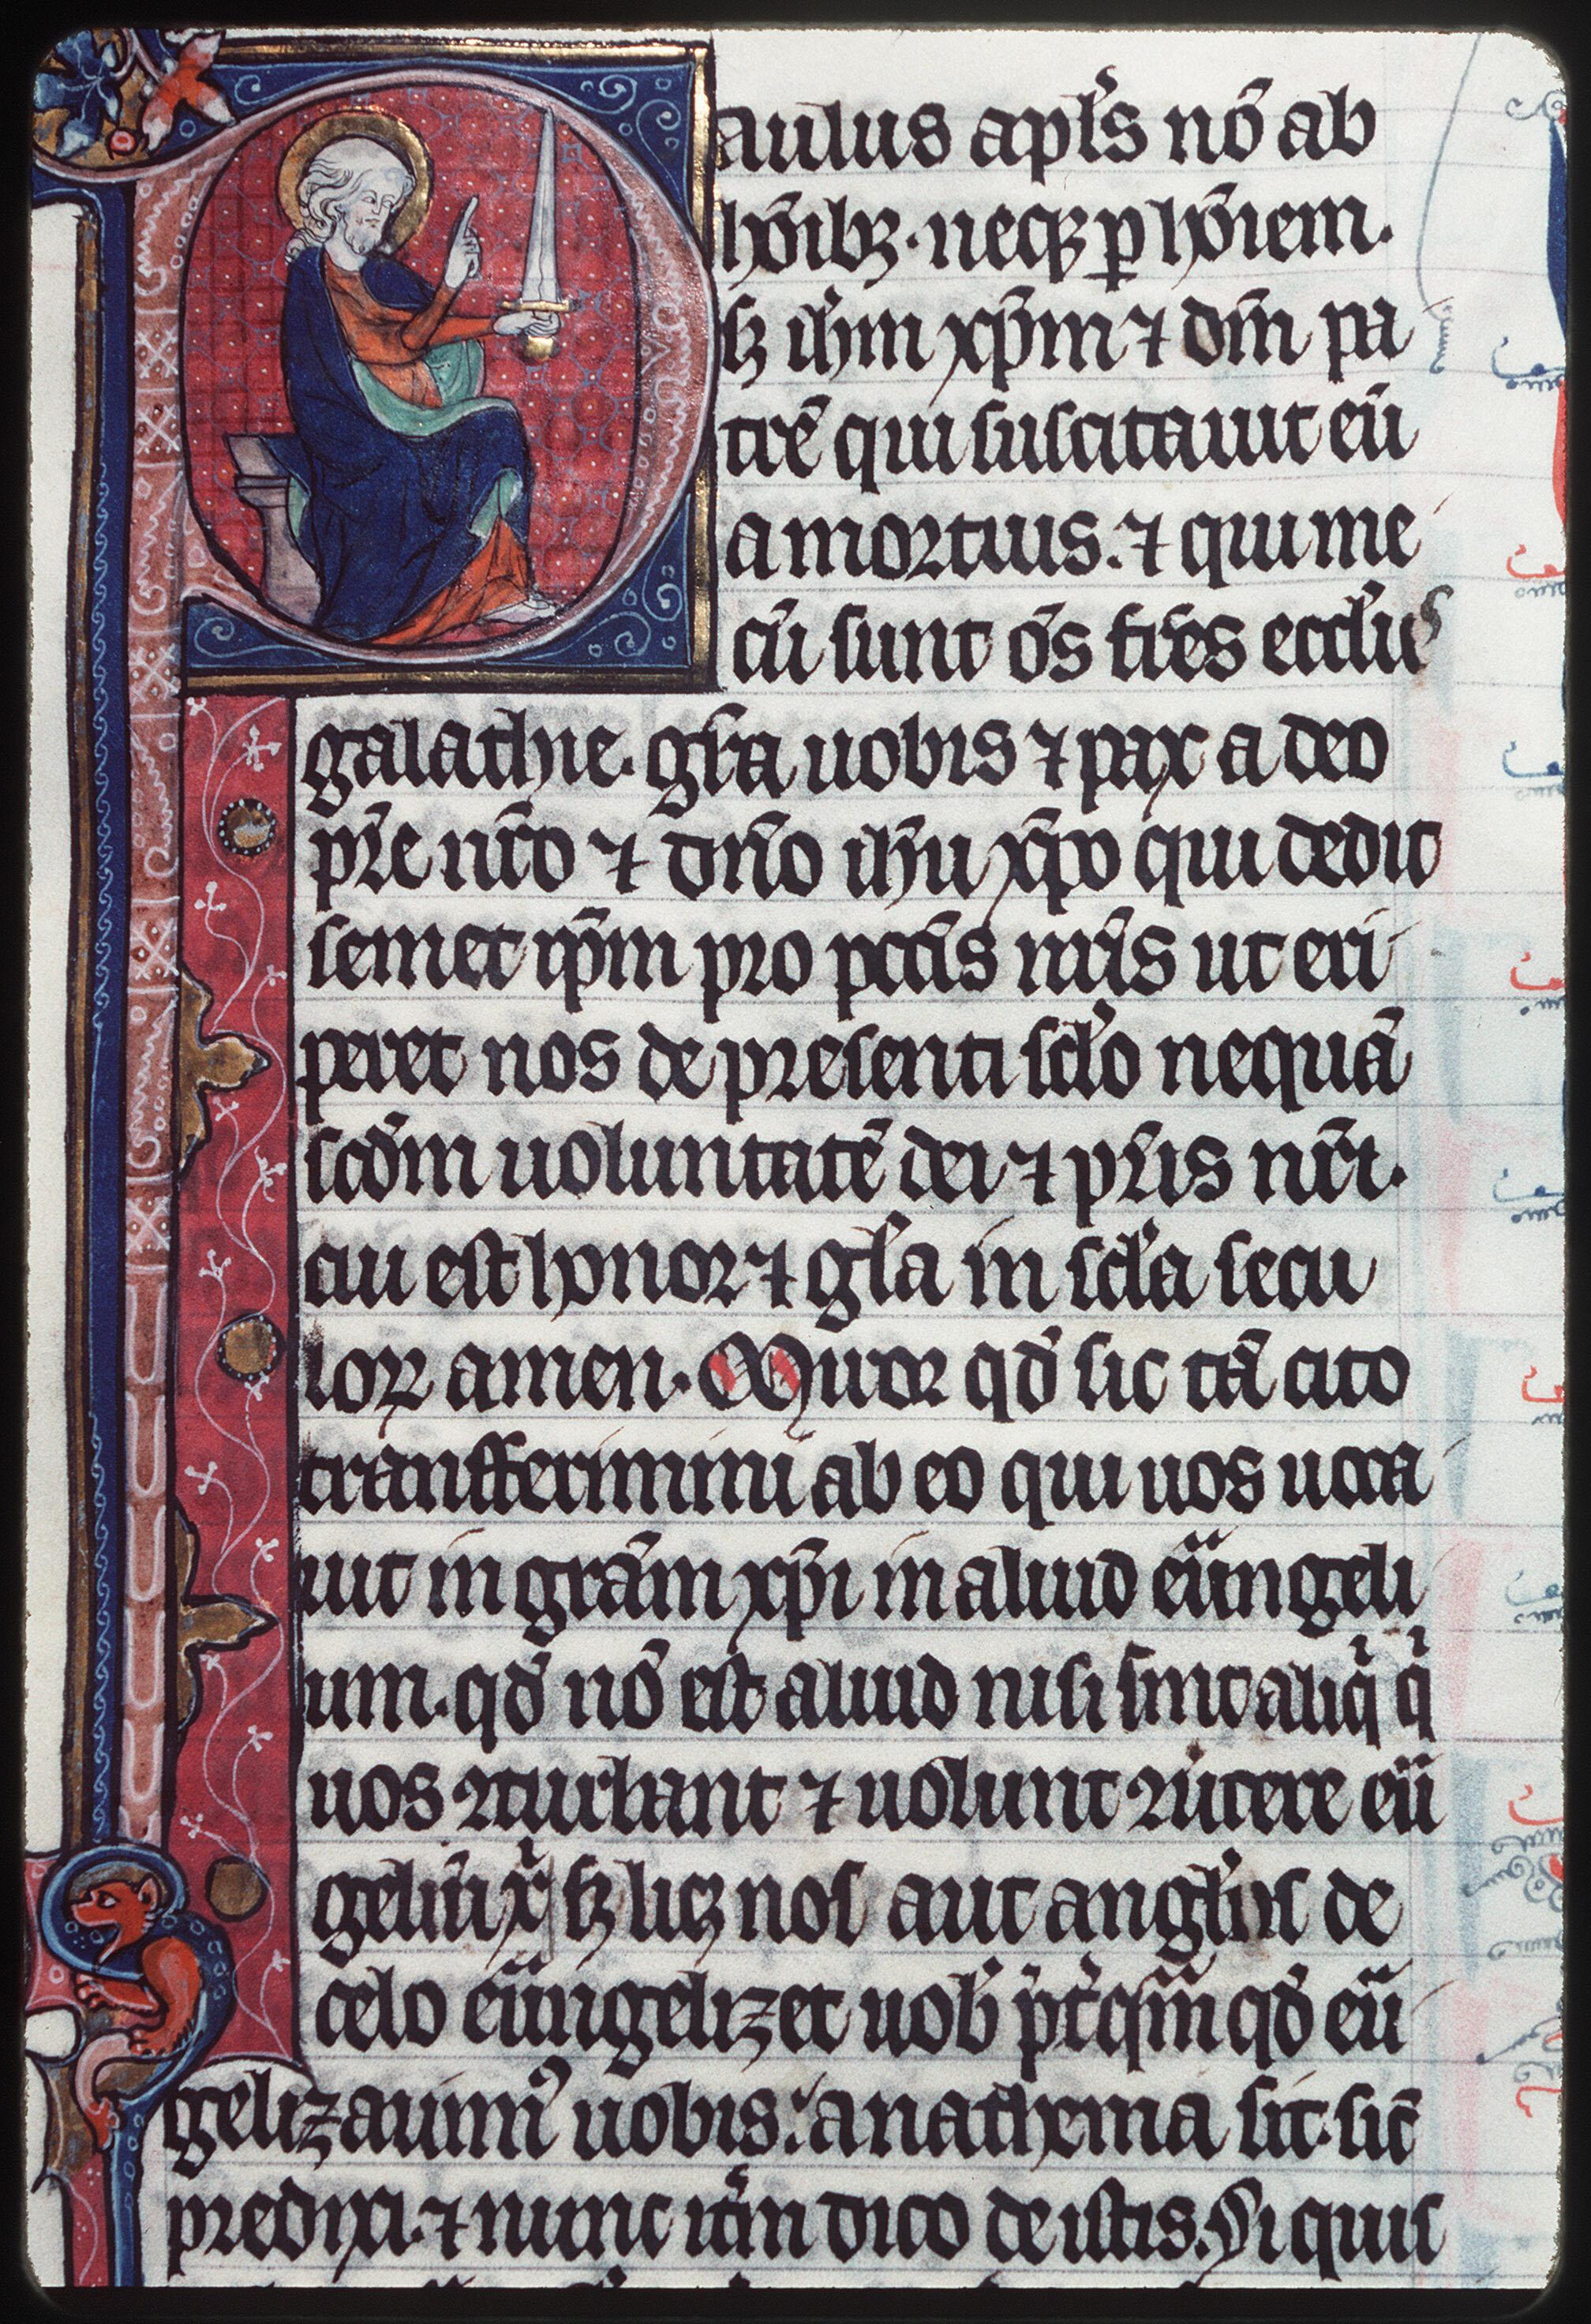 Paulus apl's nō ab
hōıbꝫ · neqꝫ ꝑ hōıem.
sꝫ ıh̄m xp̄m ⁊ dm̄ pa
trē qui suscitauit eū
a mortuis. ⁊ qui me
cū sunt oēs fr̄es eccl'iis
galathie. gr̄a uobis ⁊ pax a deo
pr̄e nr̄o ⁊ dn̄o ıh̄u xp̄o qui dedit
semet ip̄m pro pccīs nr̄is ut eri
peret nos de presenti scl'o nequā
scd̄m uoluntatē dei ⁊ pr̄is nr̄i.
cui est honor ⁊ gl'a in scl'a secu
loꝝ amen. Miror qd̄ sic tā cito
transferimini ab eo qui uos uoca
uit in grām xp̄i in aliud euāngeli
um. qd̄ nō est aliud nisi sunt aliqͥ qͥ
uos ꝯturbant ⁊ uolunt ꝯuertere euā
geliū xͥ sꝫ licꝫ nos aut angl'us de
celo euāngelizet uob̄ p̄t̄qm̄ qd̄ euā
gelizauimꝰ uobis. anathema sit. sic̄
predixi. ⁊ nunc itm̄ dico de istis. Si quis